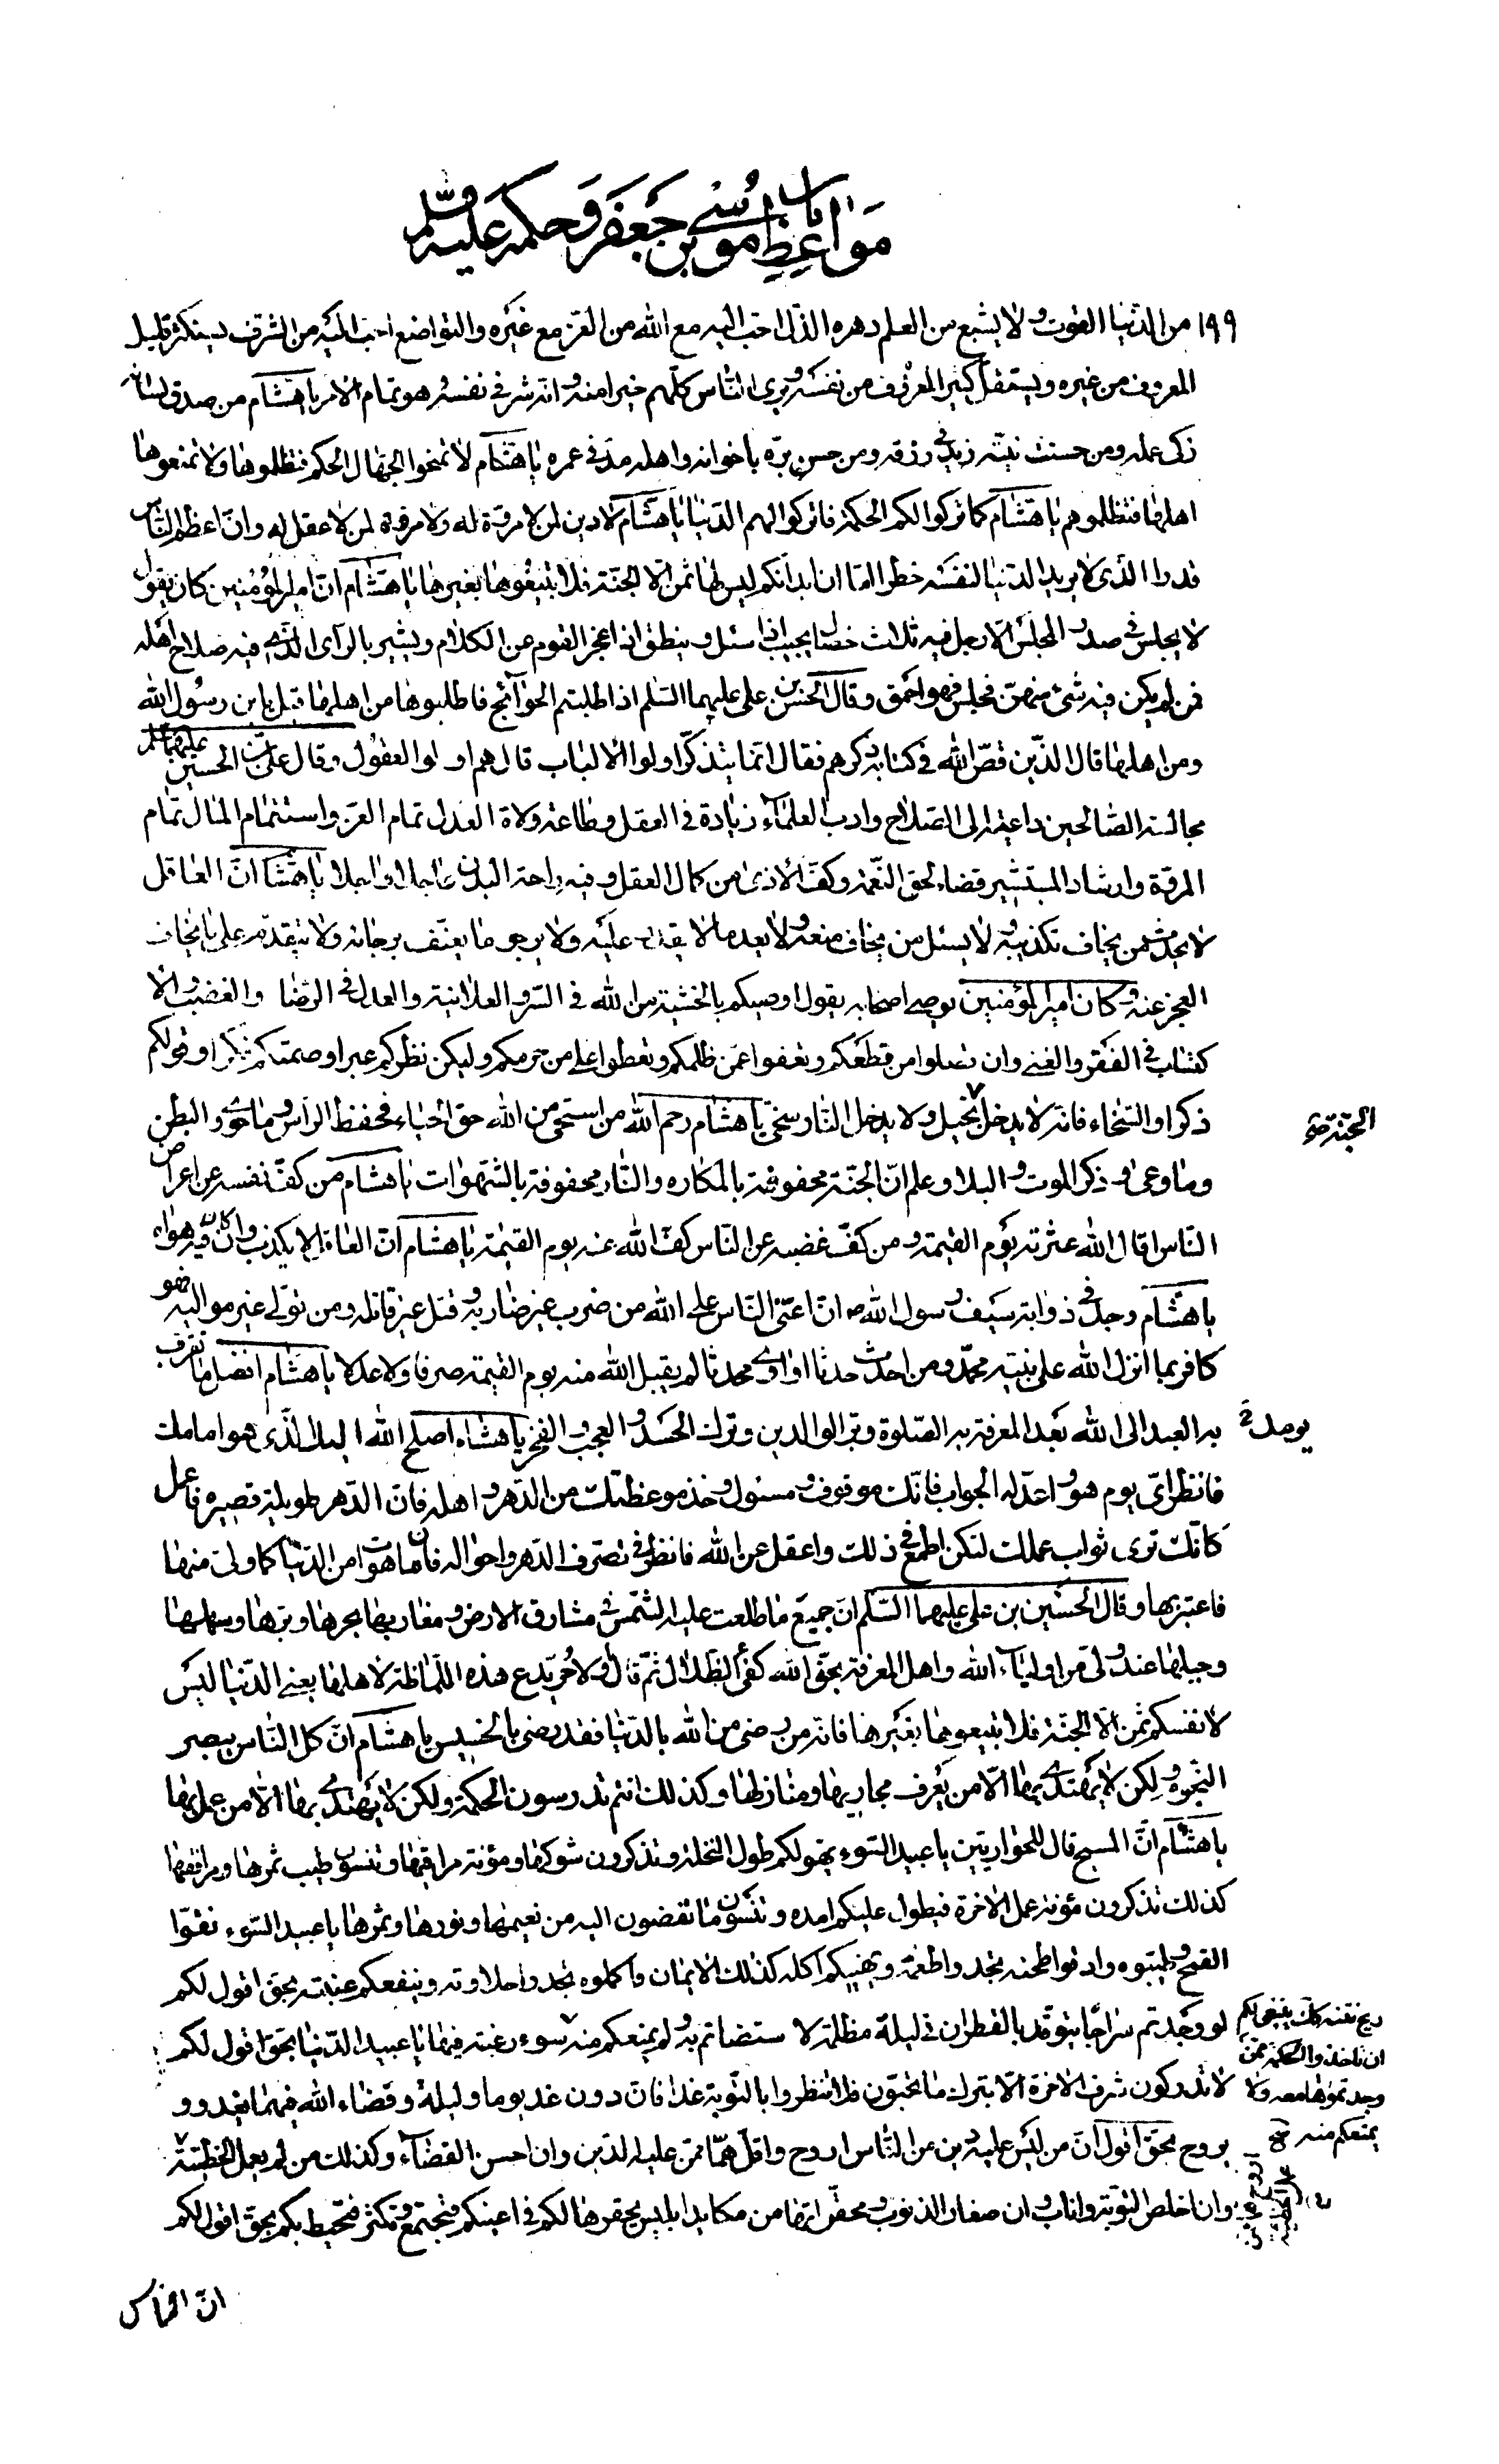 باب مواعظ موسى بن جعفر وحكمه عليه السلم
١٩٩ من الدنيا القوت ولا يشبع من العلم دهره الذل احب اليه مع الله من العز مع غيره والتواضع احب اليه من الشرف يستكثر قليل
المعروف من غيره ويستقل كثير المعروف من نفسه ويرى الناس كلهم خيرا منه وانه شر فى نفسه وهو تمام الامر يا هشام من صدق لسانه
زكى عمله ومن حسنت نيته زيد فى رزقه ومن حسن بره باخوانه واهله مد فى عمره يا هشام لا تمنحوا الجهال الحكمة فتظلموها ولا تمنعوها
اهلها فتظلموهم يا هشام كما تركوا لكم الحكمة فاتركوا لهم الدنيا يا هشام لا دين لمن لا مروة له ولا مروة لمن لا عقل له وان اعظم الناس
قدرا الذى لا يرى الدنيا لنفسه خطرا اما ان ابدانكم ليس لها ثمن الا الجنة فلا تبيعوها بغيرها يا هشام ان امير المؤمنين كان يقول
لا يجلس فى صدر المجلس الا رجل فيه ثلاث خصال يجيب اذا سئل وينطق اذا عجز القوم عن الكلام ويشير بالرأى الذى فيه صلاح اهله
فمن لم يكن فيه شئ منهن فجلس فهو احمق وقال الحسن بن على عليهما السلم اذا طلبتم الحوائج فاطلبوها من اهلها قيل يابن رسول الله
ومن اهلها قال الذين قص الله فى كتابه وذكرهم فقال انما يتذكر اولوا الالباب قال هم اولوا العقول وقال على بن الحسين عليهما السلم
مجالسة الصالحين داعية الى الصلاح وادب العلماء زيادة فى العقل وطاعة ولاة العدل تمام العز واستثمام المال تمام
المروة وارشاد المستشير قضاء لحق النعمة وكف الاذى من كمال العقل وفيه راحة البدن عاجلا واجلا يا هشام ان العاقل
لا يحدث من يخاف تكذيبه ولا يسئل من يخاف منعه ولا يعد ما لا يقدر عليه ولا يرجو ما يعنف برجائه ولا يتقدم على ما يخاف
العجز عنه وكان امير المؤمنين يوصى اصحابه يقول اوصيكم بالخشية من الله فى السر والعلانية والعدل فى الرضا والغضب والا
كتساب فى الفقر والغنى وان تصلوا من قطعكم وتعفوا عمن ظلمكم وتعطوا على من حرمكم وليكن نظركم عبرا وصمتكم فكرا وقولكم
ذكرا والسخاء فانه لا يدخل بخيل ولا يدخل النار سخى يا هشام رحم الله من استحيى من الله حق الحياء فحفظ الرأس وما حوى والبطن
الجنة صح
وما وعى وذكر الموت والبلا وعلم ان الجنة محفوفة بالمكاره والنار محفوفة بالشهوات يا هشام من كف نفسه عن اعراض
الناس اقال الله عثرته يوم القيمة ومن كف غضبه عن الناس كف الله عنه يوم القيمة يا هشام ان العاقل لا يكذب وان كان فيه هواه
يا هشام وجد فى ذوابة سيف رسول الله ص ان اعتى الناس على الله من ضرب غير ضاربه وقتل غير قاتله ومن تولى غير مواليه فهو
كافر بما انزل الله على نبيه محمد ومن احدث حدثا او اوى محدثا لم يقبل الله منه يوم القيمة صرفا ولا عدلا يا هشام افضل ما تقرب
به العبد الى الله بعد المعرفة به الصلوة وبر الوالدين وترك الحسد والعجب والفخر يا هشام اصلح الله اليك الذى هو امامك
يومك خ
فانظر اى يوم هو واعد له الجواب فانك موقوف ومسئول وخذ موعظتك من الدهر واهله فان الدهر طويلة قصيره فاعمل
كانك ترى ثواب عملك لتكن اطمع فى ذلك واعقل عن الله فانظر فى تصرف الدهر واحواله فان ما هوت من الدنيا كما ولى منها
فاعتبر بها وقال الحسين بن على عليهما السلم ان جميع ما طلعت عليه الشمس فى مشارق الارض ومغاربها بحرها وبرها وسهلها
وجبلها عند ولى من اولياء الله واهل المعرفة بحق الله كفئ الظلال ثم قال اولا حر يدع هذه اللماظة لاهلها يعنى الدنيا ليس
لانفسكم ثمن الا الجنة فلا تبيعوها بغيرها فانه من رضى من الله بالدنيا فقد رضى بالخسيس يا هشام ان كل الناس يبصر
النجوم ولكن لا يهتدى بها الا من يعرف مجاريها ومنازلها وكذلك انتم تدرسون الحكمة ولكن لا يهتدى بها الا من عمل بها
يا هشام ان المسيح قال للحواريين يا عبيد السوء يهولكم طول النخلة وتذكرون شوكها ومؤنة مراقيها وتنسون طيب ثمرها ومرافقها
كذلك تذكرون مؤنة عمل الاخرة فيطول عليكم امده وتنسون ما تفضون اليه من نعيمها ونورها وثمرها يا عبيد السوء نقوا
القمح وطيبوه وادقوا طحنه تجدوا طعمه ويهنيكم اكله كذلك الايمان واكملوه تجدوا حلاوته وينفعكم غبته بحق اقول لكم
لو وجدتم سراجا يتوقد بالقطران فى ليلة مظلمة لا ستضاتم به ولم يمنعكم منه سوء رغبته فيها يا عبيد الدنيا بحق اقول لكم
ريح نتنه كذلك ينبغى لكم
ان تاخذوا الحكمة ممن
وجدتموها معه ولا
يمنعكم منه
لا تدركون شرف الاخرة الا بترك ما تحبون فلا تنظروا بالتوبة غدا فان دون غد يوما وليلة وقضاء الله فيهما يغدو و
يروح بحق اقول ان من ليس عليه دين من الناس اروح واقل هما ممن عليه الدين وان احسن القضاء وكذلك من لم يعمل الخطيئة
وان اخلص التوبة واناب وان صغار الذنوب ومحقراتها من مكايد ابليس يحقرها لكم فى اعينكم فتجتمع وتكثر فتحيط بكم بحق اقول لكم
ان الناس